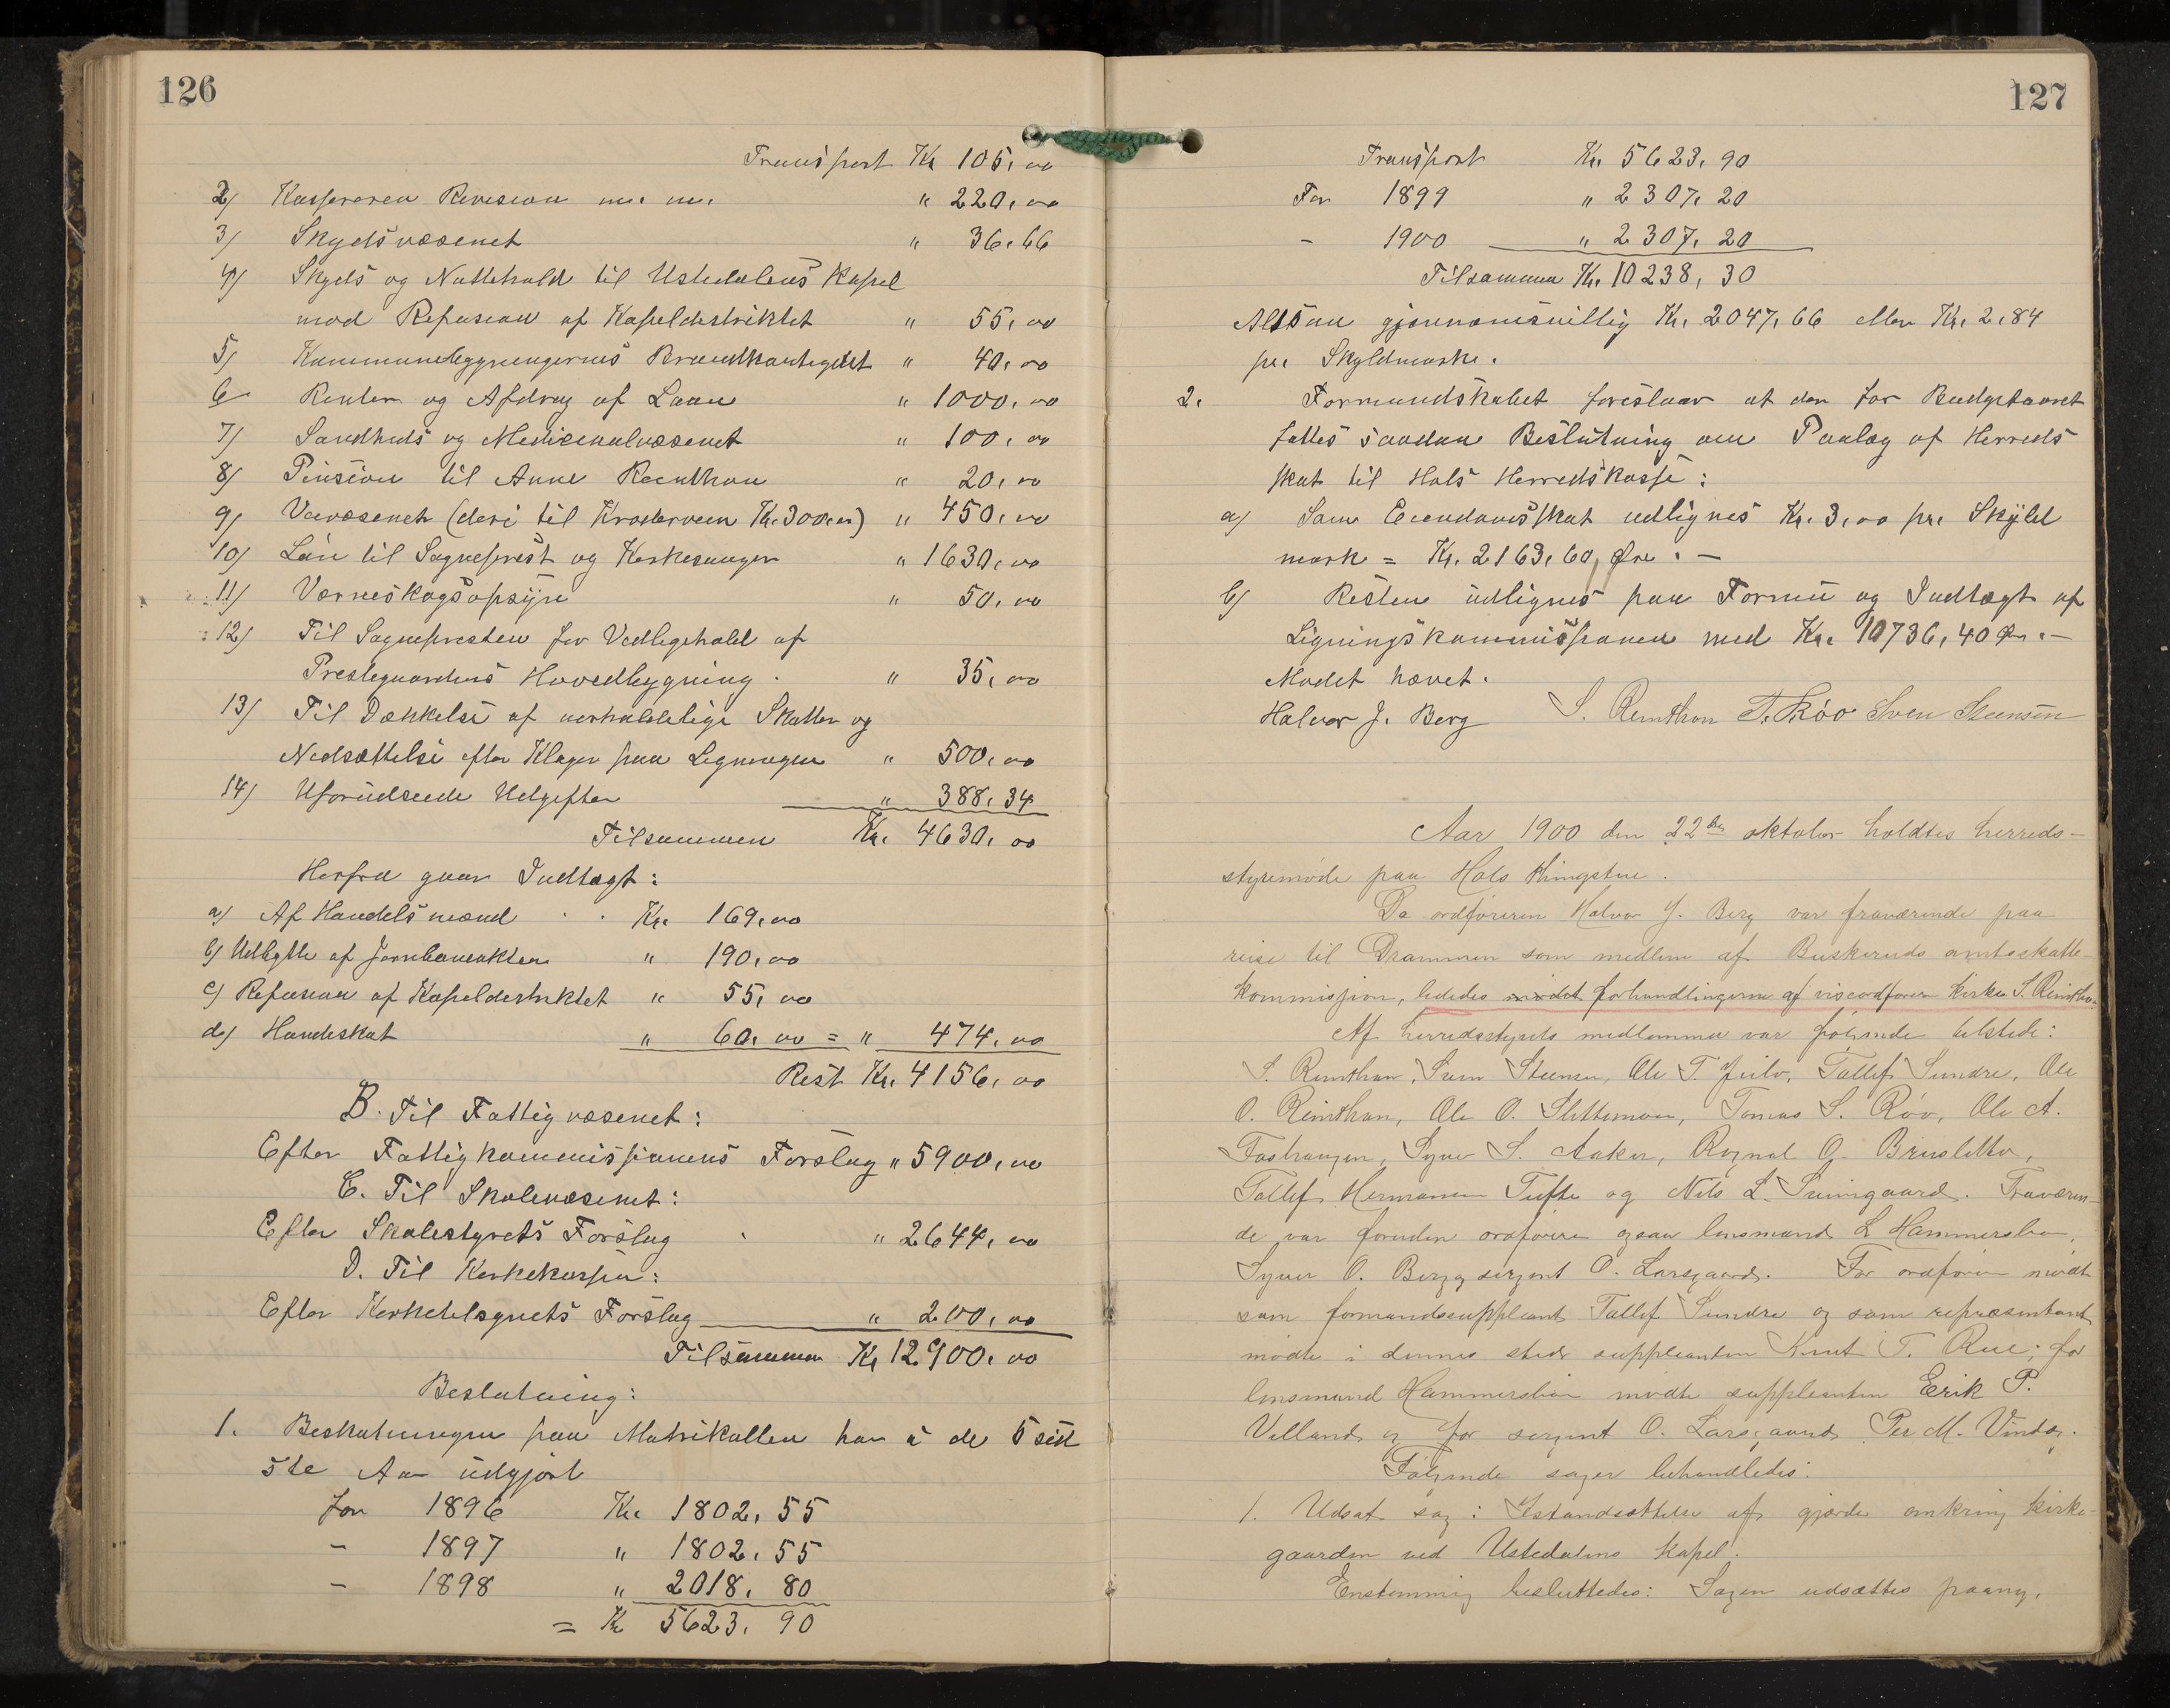 126
Transport Kr 105,00
2) Kassereren Revision m. m. " 220,00
3) Skydsvæsenet " 36,66
4) Skyds og Nattehold til Ustedalens Kapel
mod Refusion af Kapeldistriktet " 55,00
5) Kommunebygningernes Brandkontigent " 40,00
6 Renter og Afdrag af Laan " 1000,00
7) Sundheds og Medicinalvæsenet " 100,00
8) Pension til Anne Reinthon " 20,00
9) Veivæsenet (deri til Kroderveien Kr. 300,00) " 450,00
10) Løn til Sogneprest og Kirkesanger " 1630,00
11) Værneskogsopsyn " 50,00
12) Til Sognepresten for Vedligehold af
Prestegaardens Hovedbygning. " 35,00
13) Til Dækkelse af uerholdelige Skatter og
Nedsættelse efter Klager paa Ligningen " 500,00
14) Uforudseede Udgifter " 388,34
Tilsammen Kr. 4630,00
Herfra gaar Indtægt:
a) Af Handelsmænd . . Kr. 169,00
b) Udbytte af Jernbaneaktier " 190,00
c) Refusion af Kapeldistriktet " 55,00
d) Hundeskat " 60,00 = " 474,00
Rest Kr. 4156,00
B. Til Fattigvæsenet:
Efter Fattigkommissionens Forslag " 5900,00
C. Til Skolevæsenet:
Efter Skolestyrets Forslag " 2644,00
D. Til Kirkekassen:
Efter Kirketilsynets Forslag " 200,00
Tilsammen Kr 12900,00
Beslutning:
1. Beskatningen paa Matrikullen har i de 5 sid
ste Aar udgjort
for 1896 Kr. 1802,55
- 1897 " 1802,55
- 1898 " 2018,80
= Kr 5623,90
127
Transport Kr. 5623,90
For 1899 " 2307,20
- 1900 " 2307,20
Tilsammen Kr. 10238,30
Altsaa gjennemsnitlig Kr. 2047,66 eller Kr. 2,84
pr. Skyldmark.
2. Formandskabet foreslaar at der for Budgetaaret
fattes saadan Beslutning om Paalæg af Herreds
skat til Hols Herredskasse:
a) Som Eiendomsskat udlignes Kr. 3,00 pr. Skyld
mark = Kr. 2163,60, Øre. -
b) Resten udlignes paa Formue og Indtægt af
Ligningskommissionen med Kr. 10736,40 Øre. -
Mødet hævet.
Halvor J. Berg S. Reinthon T. Røo Sven Steensen
Aar 1900 den 22de oktober holdtes herreds-
styremøde paa Hols thingstue.
Da ordføreren Halvor J. Berg var fraværende paa
reise til Drammen som medlem af Buskeruds amtsskatte-
kommission, lededes mødet forhandlingerne af viceordfører kirkes. S. Reinthon.
Af herredsstyrets medlemmer var følgende tilstede:
S. Reinthon, Sven Steensen, Ole T. Geilo, Tollef Sundre, Ole
O. Reinthon, Ole O. Slettemoen, Tomas S. Røo, Ole A.
Foshaugen, Syver S. Aaker, Ragnal O. Brusletto,
Tollef Hermansen Tufte og Nils L. Sveingaard. Fraværen-
de var foruden ordfører ogsaa lensmand L Hammersbøen,
Syver O. Berg og sergent O. Larsgaard. For ordføreren mødte
som formandssuppleant Tollef Sundre og som repræsentant
mødte i dennes sted suppleanten Knut T. Rue; for
lensmand Hammersbøen mødte suppleanten Erik P.
Villand og for sergent O. Larsgaard Per M. Vindeg.
Følgende sager behandledes:
1. Udsat sag: Istandsættelse af gjærde omkring kirke-
gaarden ved Ustedalens kapel.
Enstemmig besluttedes: Sagen udsættes paany.